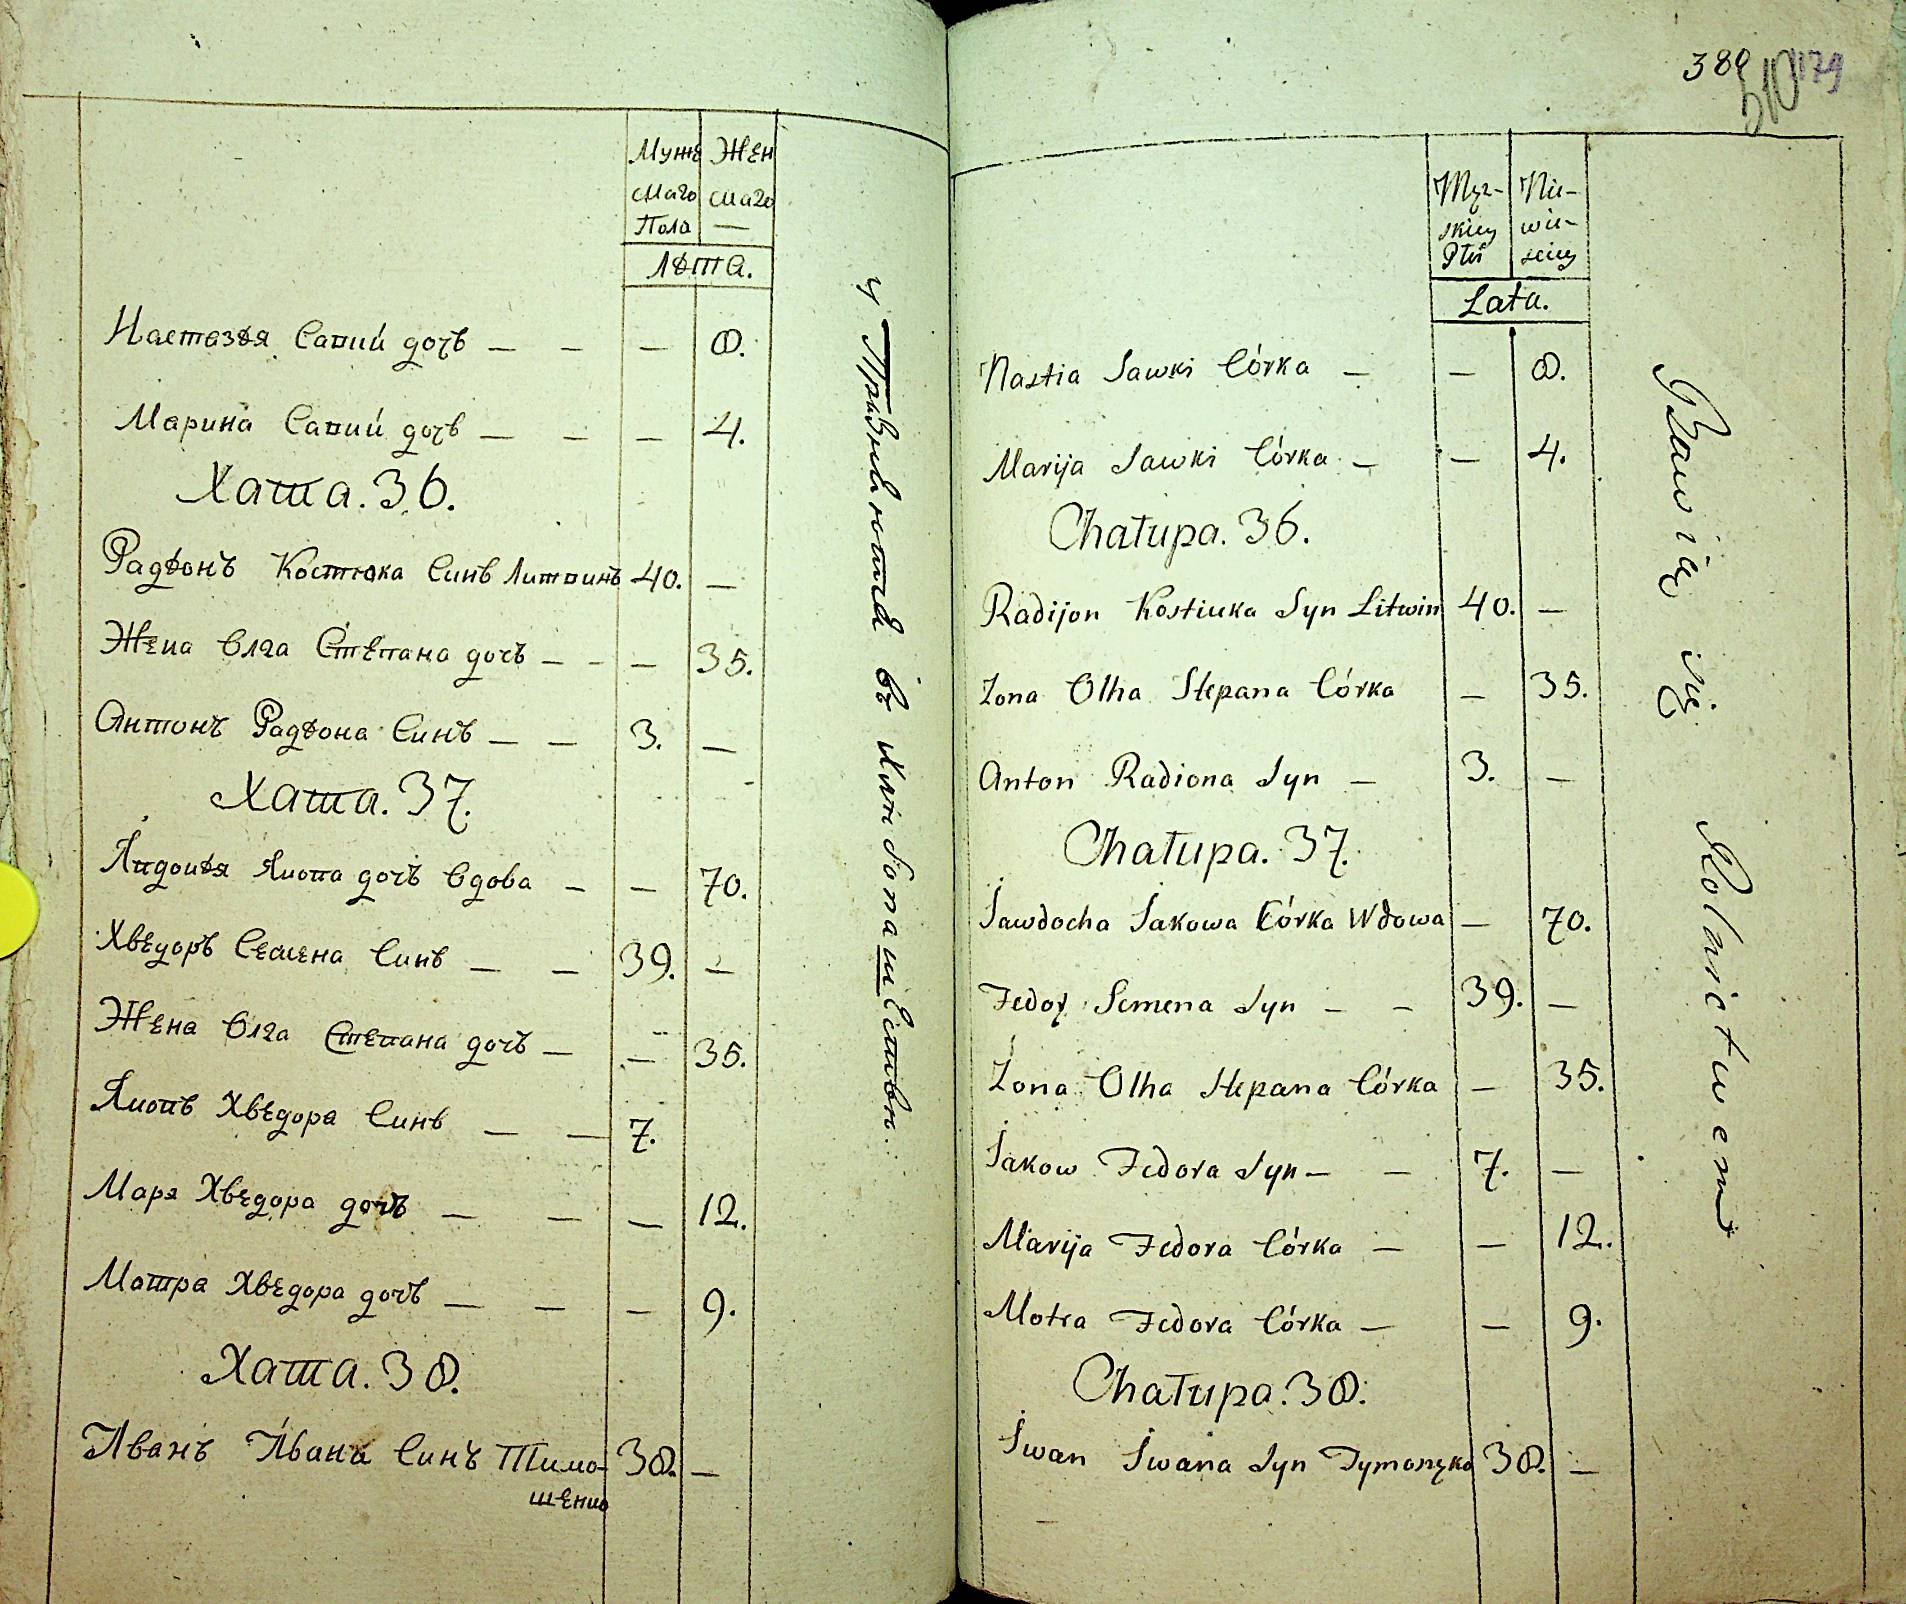 Муже Жен
скаго скаго
Пола —
Лѣта.
Настазѣя Савки дочъ — — — 8.
Марина Савки дочъ — — — 4.
Хата. 36.
Радѣонъ Костюка Синъ Литвинъ 40. —
Жена Олга Степана дочъ — - — 35.
Антонъ Радѣона Синъ — — 3. —
Хата. 37.
Явдокѣя Якова дочъ Вдова — — 70.
Хведоръ Семена Синъ — — 39. —
Жена Олга Степана дочъ — — 35.
Яковъ Хведора Синъ — — 7.
Маря Хведора дочъ — — — 12.
Мотра Хведора дочъ — — — 9.
Хата. 38.
Иванъ Ивана Синъ Тимо- 38. —
шенко
Хлѣбопашествомъ
389 510 179
Męz- Nie-
skiey wie-
Płci sciey
Lata.
Nastia Sawki Córka — — 8.
Marija Sawki Córka — — 4.
Chałupa. 36.
Radijon Kostiuka Syn Litwin 40. —
Zona Olha Stepana Córka — 35.
Anton Radiona Syn — 3. —
Chałupa. 37.
Jawdocha Jakowa Córka Wdowa — 70.
Fedor Semena Syn — — 39. —
Zona Olha Stepana Córka — 35.
Jakow Fedora Syn — — 7. —
Marija Fedora Córka — — 12.
Motra Fedora Córka — — 9.
Chałupa. 38.
Iwan Iwana Syn Tymoszko 38. —
Bawią się Rolnictwem